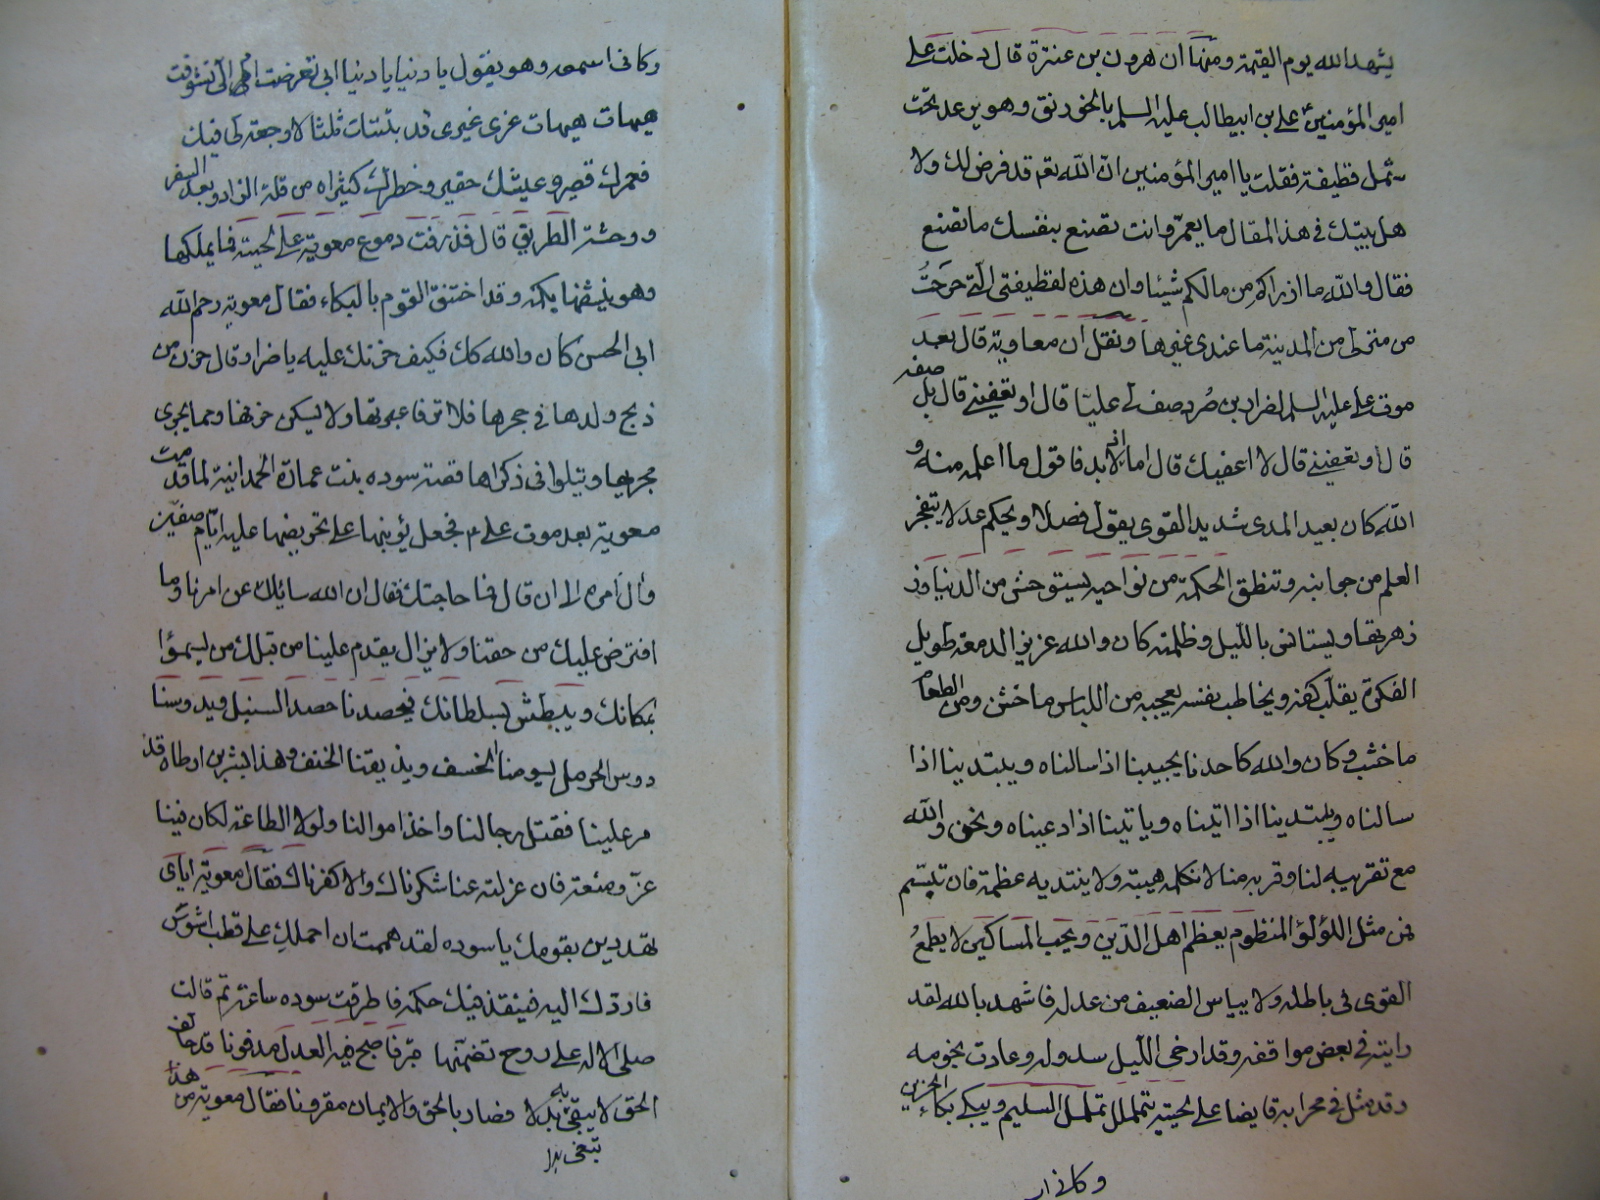 يشهد الله يوم القيمة ومنها ان هرون بن عنترة قال دخلت على
امير المؤمنين علي بن ابيطالب عليه السلم بالخورنق وهو يرعد تحت
شمل قطيفة فقلت يا امير المؤمنين ان الله تع قد فرض لك ولا
هل بيتك في هذا المقال ما يعمّ وانت تصنع بنفسك ما تصنع
فقال والله ما ازراكم من مالكم شيئا وان هذه لقطيفتي الّتي خرجتُ
من منزلي من المدينة ما عندي غيرها ونقل ان معاوية قال بعد
موت علي عليه السلم لضرار بن ضمرة صف لي عليّا قال او تعفيني قال بل صفه
قال او تعفيني قال لا اعفيك قال اما انه لا بد فاقول ما اعلمه منه و
الله كان بعيد المدى شديد القوى يقول فصلا ويحكم عدلا يتفجر
العلم من جوانبه وتنطق الحكمة من نواحيه يستوحش من الدنيا و
زهرتها ويستانس بالليل وظلمته كان والله غزير الدمعة طويل
الفكرة يقلّب كفه ويخاطب نفسه يعجبه من اللباس ما خشن ومن الطعام
ما خشب وكان والله كاحدنا يجيبنا اذا سالناه ويبتدينا اذا
سالناه ويبتدينا اذا اتيناه وياتينا اذا دعيناه ونحن والله
مع تقريبه لنا وقربه منا لا نكلمه هيبة ولا يبتديه عظمة فان تبسّم
فمن مثل اللؤلؤ المنظوم يعظّم اهل الدّين ويحب المساكين لا يطمعُ
القوى في باطله ولا يياس الضعيف من عدله فاشهد بالله لقد
رايته في بعض مواقفه وقد ارخى الليل سدوله وغارت نجومه
وقد مثل في محرابه قابضا على لحيته يتململ تململ السليم ويبكي بكاء الحزين
وكاني ا
وكاني اسمعه وهو يقول يا دنيا يا دنيا ابي تعرضت ام الىّ تشوقت
هيهات هيهات غرى غيرى قد بتتتك ثلثا لا رجعة لي فيك
فعمرك قصير وعيشك حقير وخطرك كثير اه من قلة الزاد وبعد السفر
ووحشة الطريق قال فذرفت دموع معوية على لحيته فما يملكها
وهو ينشفها بكمه وقد اختنق القوم بالبكاء فقال معوية رحم الله
ابي الحسن كان والله كك فكيف حزنك عليه يا ضرار قال حزن من
ذبح ولدها في حجرها فلا ترقا عبرتها ولا يسكن حزنها ومما يجرى
مجريها ويتلوا في ذكراها قصة سوده بنت عمارة الهمدانية لما قدمت
معوية بعد موت علي ع فجعل يؤنبها على تحريضها عليه ايّام صفّين
وال امره الى ان قال فما حاجتك فقال ان الله سائلك عن امرنا وما
افترض عليك من حقنا ولا يزال يقدم علينا من قبلك من يسموا
بمكانك ويبطش بسلطانك فيحصدنا حصد السنبل ويدوسنا
دوس الحرمل يسومنا الخسف ويذيقنا الحتف وهذا بشر بن ارطاه قد
مر علينا فقتل رجالنا واخذ اموالنا ولولا الطاعة لكان فينا
عزّ ومنعة فان عزلته عنا شكرناك والا كفرناك فقال معوية اياى
تهددين بقومك يا سوده لقد هممت ان احملك على قطب اشوس
فاردك اليه فينفذ فيك حكمه فاطرقت سوده ساعة ثم قالت
صلى الاله على روح تضمّنها قبر فاصبح فيه العدل مدفونا قد حالف
الحق لا يبغي به بدلا فصار بالحق والايمان مقرونا فقال معوية من هذا